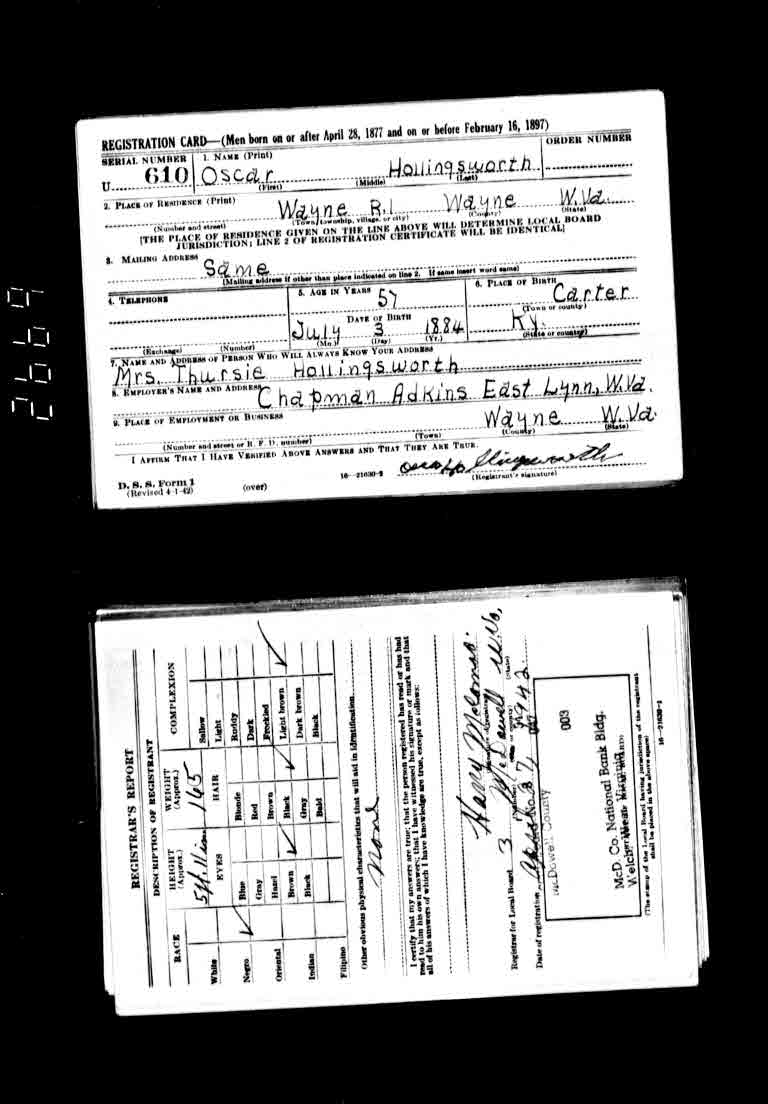 REGISTRATION CARD—(Men born on or after April 28, 1877 and on or before February 16, 1897)
SERIAL NUMBER
1. NAME (Print)
ORDER NUMBER
U 610
Oscar Hollingsworth
(First) (Middle) (Last)
2. PLACE OF RESIDENCE (Print)
Wayne R.1 Wayne W.Va.
(Number and street) (Town, township, village, or city) (County) (State)
[THE PLACE OF RESIDENCE GIVEN ON THE LINE ABOVE WILL DETERMINE LOCAL BOARD
JURISDICTION; LINE 2 OF REGISTRATION CERTIFICATE WILL BE IDENTICAL]
3. MAILING ADDRESS
Same
(Mailing address if other than place indicated on line 2. If same insert word same)
4. TELEPHONE
5. AGE IN YEARS
57
6. PLACE OF BIRTH
Carter
(Town or county)
DATE OF BIRTH
July 3 1884
Ky.
(Exchange) (Number) (Mo.) (Day) (Yr.) (State or country)
7. NAME AND ADDRESS OF PERSON WHO WILL ALWAYS KNOW YOUR ADDRESS
Mrs. Thursie Hollingsworth
8. EMPLOYER'S NAME AND ADDRESS
Chapman Adkins East Lynn, W.Va.
9. PLACE OF EMPLOYMENT OR BUSINESS
Wayne W.Va.
(Number and street or R. F. D. number) (Town) (County) (State)
I AFFIRM THAT I HAVE VERIFIED ABOVE ANSWERS AND THAT THEY ARE TRUE.
D. S. S. Form 1
(Revised 4-1-42)
(over)
16—21630-2
Oscar Hollingsworth
(Registrant's signature)
REGISTRAR'S REPORT
DESCRIPTION OF REGISTRANT
RACE
HEIGHT (Approx.)
WEIGHT (Approx.)
COMPLEXION
165
EYES
HAIR
White
Negro
Oriental
Indian
Filipino
Blue
Gray
Hazel
Brown
Black
Blonde
Red
Brown
Black
Gray
Bald
Sallow
Light
Ruddy
Dark
Freckled
Light brown
Dark brown
Black
Other obvious physical characteristics that will aid in identification
None
I certify that my answers are true; that the person registered has read or has had
read to him his own answers; that I have witnessed his signature or mark and that
all of his answers of which I have knowledge are true, except as follows:
Harry McComas
Registrar for Local Board 3 McDowell W.Va.
(State)
Date of registration
1942
McDowell County
003
McD. Co. National Bank Bldg.
Welch, West Virginia
(The stamp of the Local Board having jurisdiction of the registrant
shall be placed in the above space)
16—21630-2